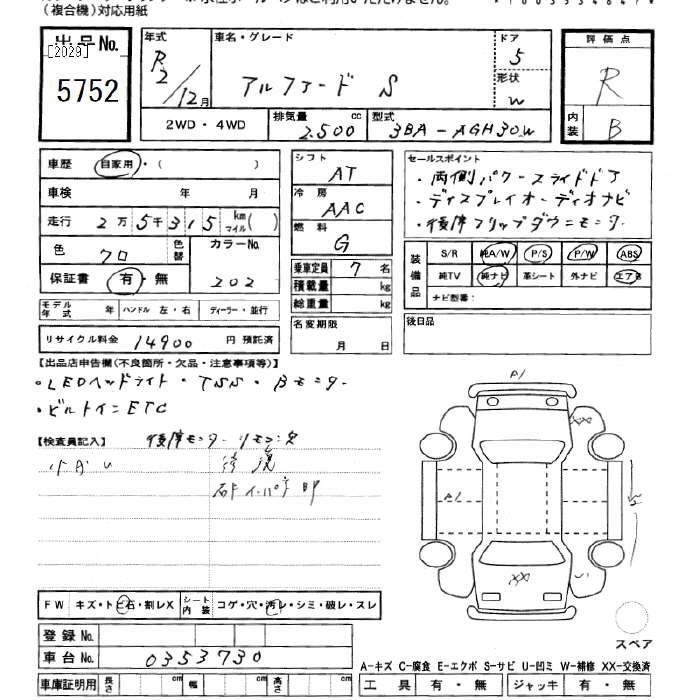 (複合機)対応用紙
出品No. [2029] 5752
年式 R2/12月
車名・グレード アルファード S
ドア 5
形状 W
評価点 R
内装 B
2WD・4WD
排気量 2,500 cc
型式 3BA-AGH30W
車歴 自家用・( )
車検 年 月
走行 2万5千315 km マイル( )
色 クロ 色替 カラーNo. 202
保証書 有・無
モデル年式 年 ハンドル 左・右 ディーラー・並行
リサイクル料金 14900 円 預託済
シフト AT
冷房 AAC
燃料 G
乗車定員 7 名
積載量 kg
総重量 kg
名変期限 月 日
セールスポイント
・両側パワースライドドア
・ディスプレイオーディオナビ
・後席フリップダウンモニター
装備品 S/R 純A/W P/S P/W ABS
純TV 純ナビ 革シート 外ナビ エアB
ナビ型番:
後日品
【出品店申告欄(不良箇所・欠品・注意事項等)】
・LEDヘッドライト・TSS・Bモニター
・ビルトインETC
【検査員記入】 後席モニターリモコン欠
小さい
修復
A1
A1
XX
XX
FW キズ・トビ石・割レX
シート内装 コゲ・穴・汚レ・シミ・破レ・スレ
登録No.
車台No. 0353730
車庫証明用 長さ cm 幅 cm 高さ cm
スペア
A-キズ C-腐食 E-エクボ S-サビ U-凹ミ W-補修 XX-交換済
工具 有・無 ジャッキ 有・無